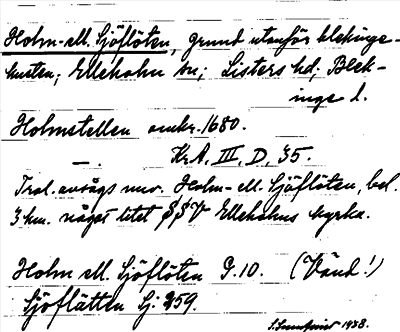 Holm- ell. Sjöflöten, grund utanför blekinge-
kusten; Elleholm sn; Listers hd; Blek-
inge l.
Holmstellen omkr. 1680.
—"— Kr.A. III, D, 35.
Trol. avsågs nuv. Holm- ell. Sjöflöten, bel.
3 km. något litet SSV Elleholms kyrka.
Holm ell. Sjöflöten G. 10. (Vänd!)
Sjöflätten Gj. 259.
1938.